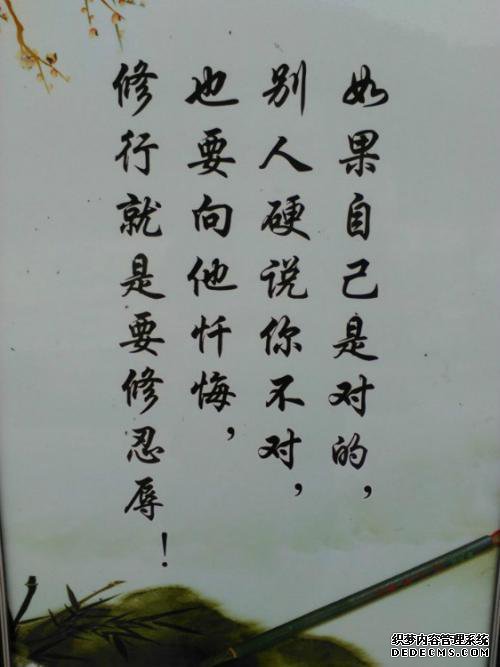 如果自己是对的，
别人硬说你不对，
也要向他忏悔，
修行就是要修忍辱！
织梦内容管理系统
DEDECMS.COM